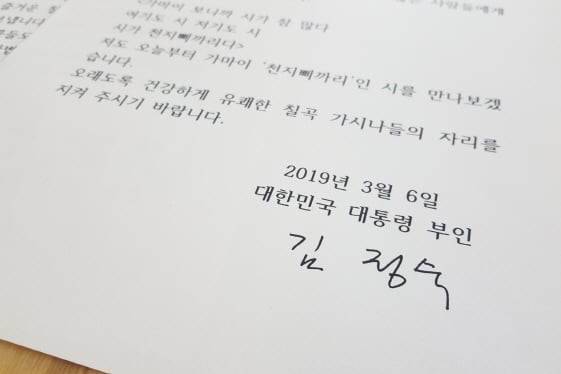 사람들에게
<가마이 보니까 시가 참 많다
여기도 시 저기도 시
시가 천지삐까리다>
저도 오늘부터 가마이 '천지삐까리'인 시를 만나보겠
습니다.
오래도록 건강하게 유쾌한 칠곡 가시나들의 자리를
지켜 주시기 바랍니다.
2019년 3월 6일
대한민국 대통령 부인
김 정숙